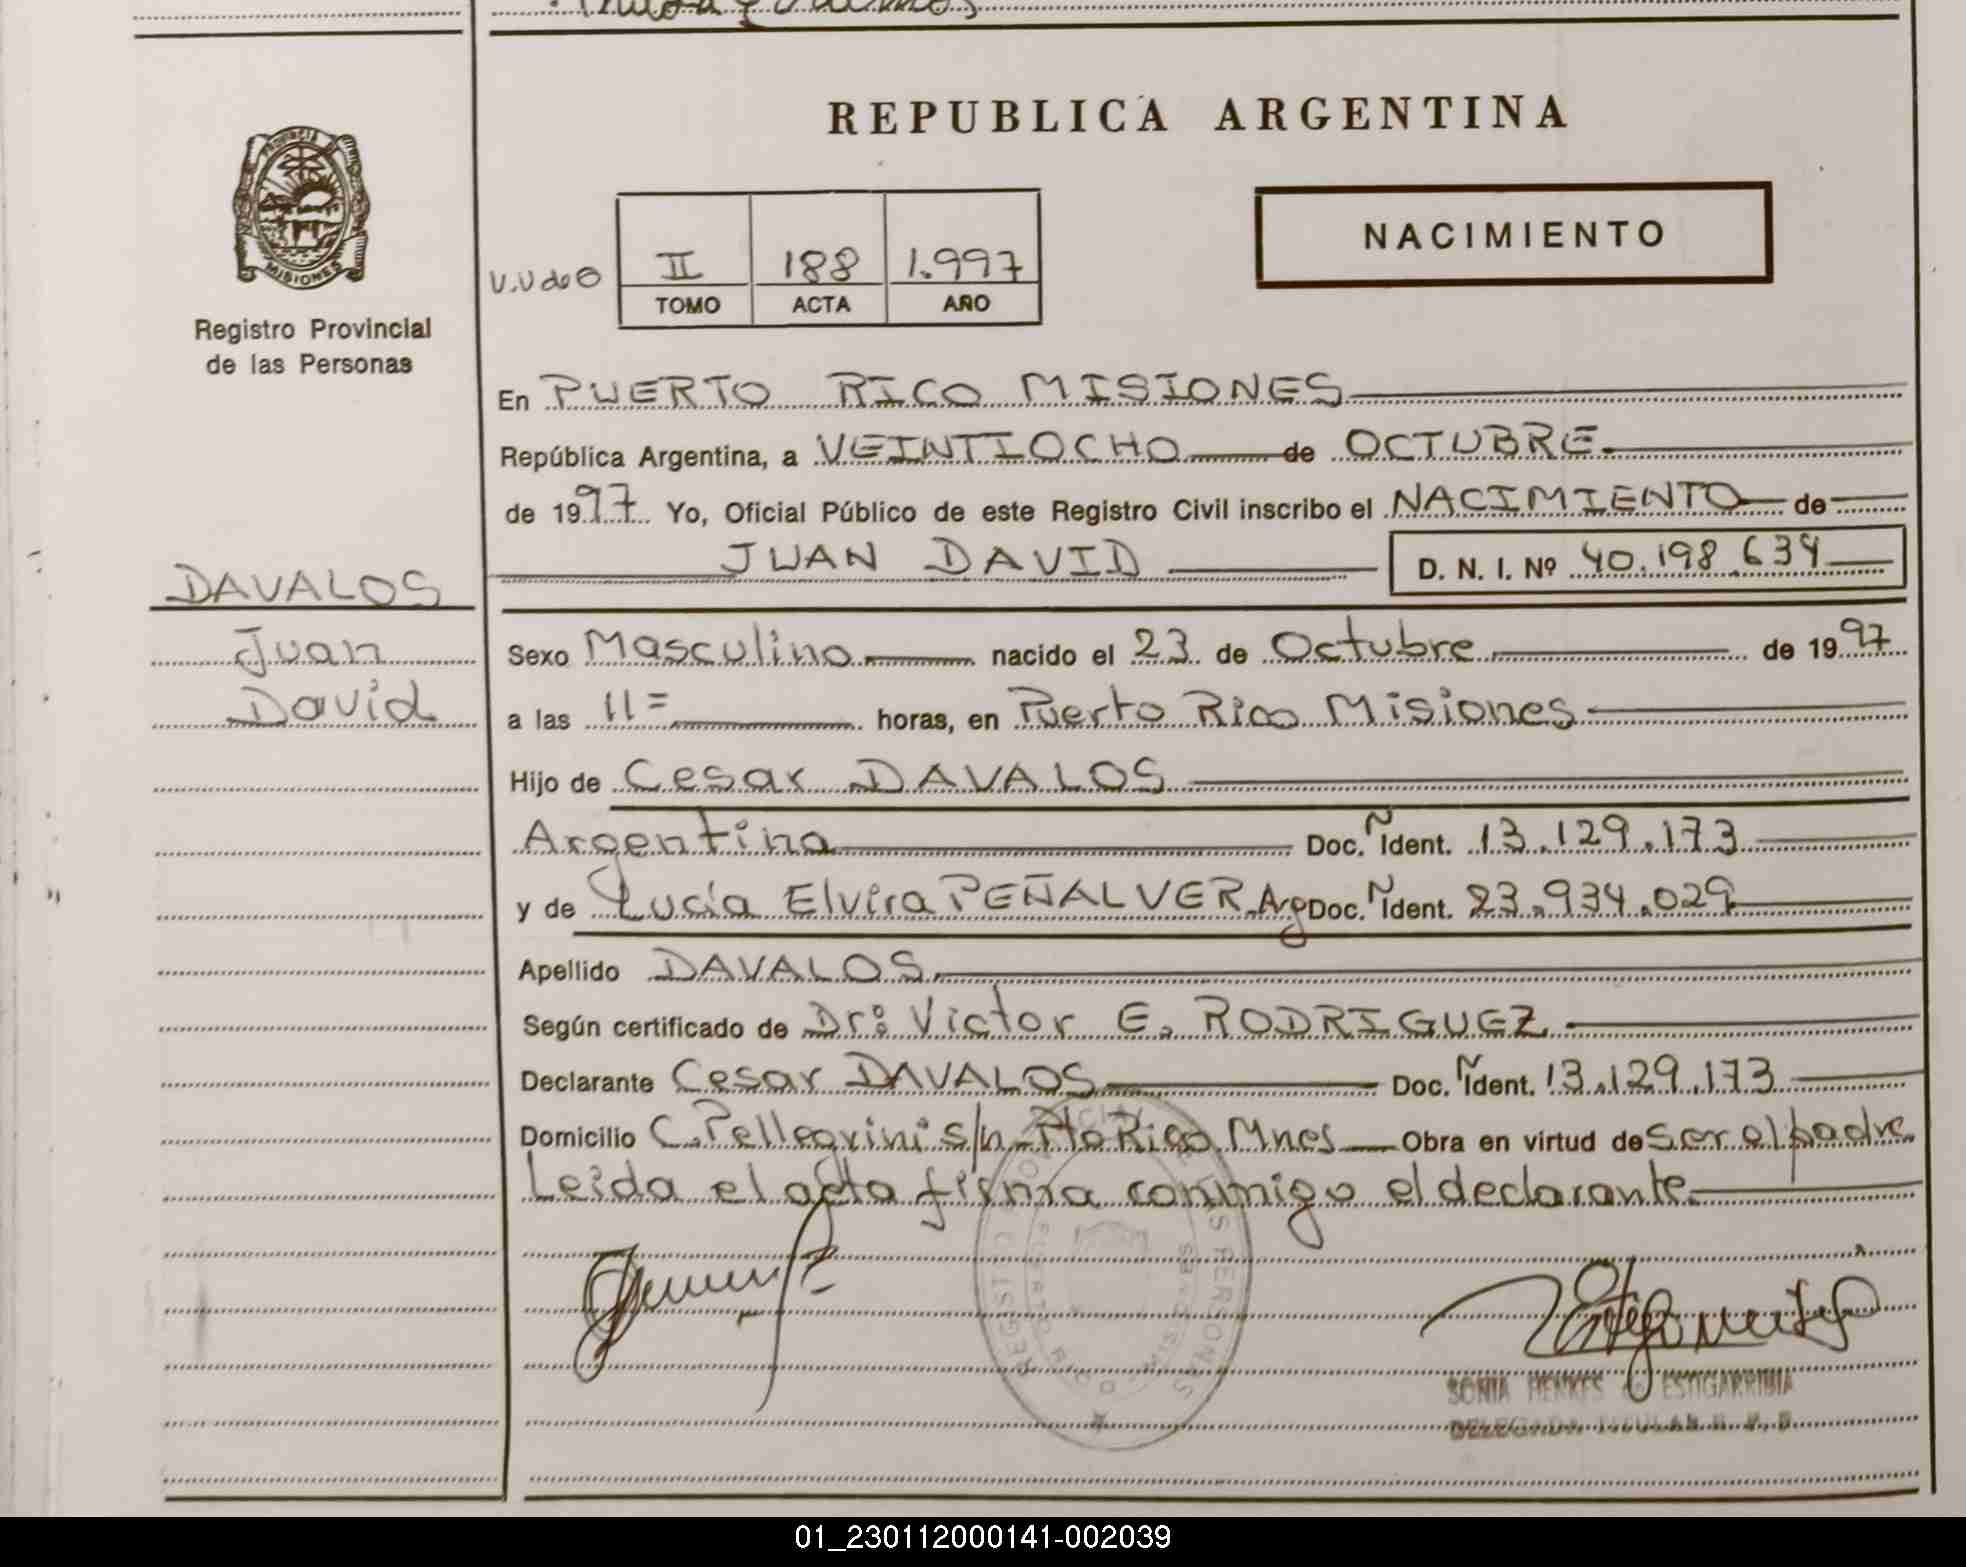 REPUBLICA ARGENTINA
PROVINCIA
MISIONES
Registro Provincial
de las Personas
NACIMIENTO
II 188 1.997
TOMO ACTA AÑO
En PUERTO RICO MISIONES
República Argentina, a VEINTIOCHO de OCTUBRE
de 1997 Yo, Oficial Público de este Registro Civil inscribo el NACIMIENTO de
JUAN DAVID D. N. I. Nº 40.198.634
DAVALOS
Juan
David
Sexo Masculino nacido el 23 de Octubre de 1997
a las 11= horas, en Puerto Rico Misiones
Hijo de Cesar DAVALOS
Argentina Doc. Ident. 13.129.173
y de Lucía Elvira PEÑALVER Arg Doc. Ident. 23.934.029
Apellido DAVALOS
Según certificado de Dr: Victor E. RODRIGUEZ
Declarante Cesar DAVALOS Doc. Ident. 13.129.173
Domicilio C. Pellegrini s/n Pto Rico Mnes Obra en virtud de ser el padre
Leida el acta firma conmigo el declarante
REGISTRO PROVINCIAL DE LAS PERSONAS
PUERTO RICO MISIONES
SONIA HENKES de ESTIGARRIBIA
DELEGADA TITULAR R. P. P.
01_230112000141-002039